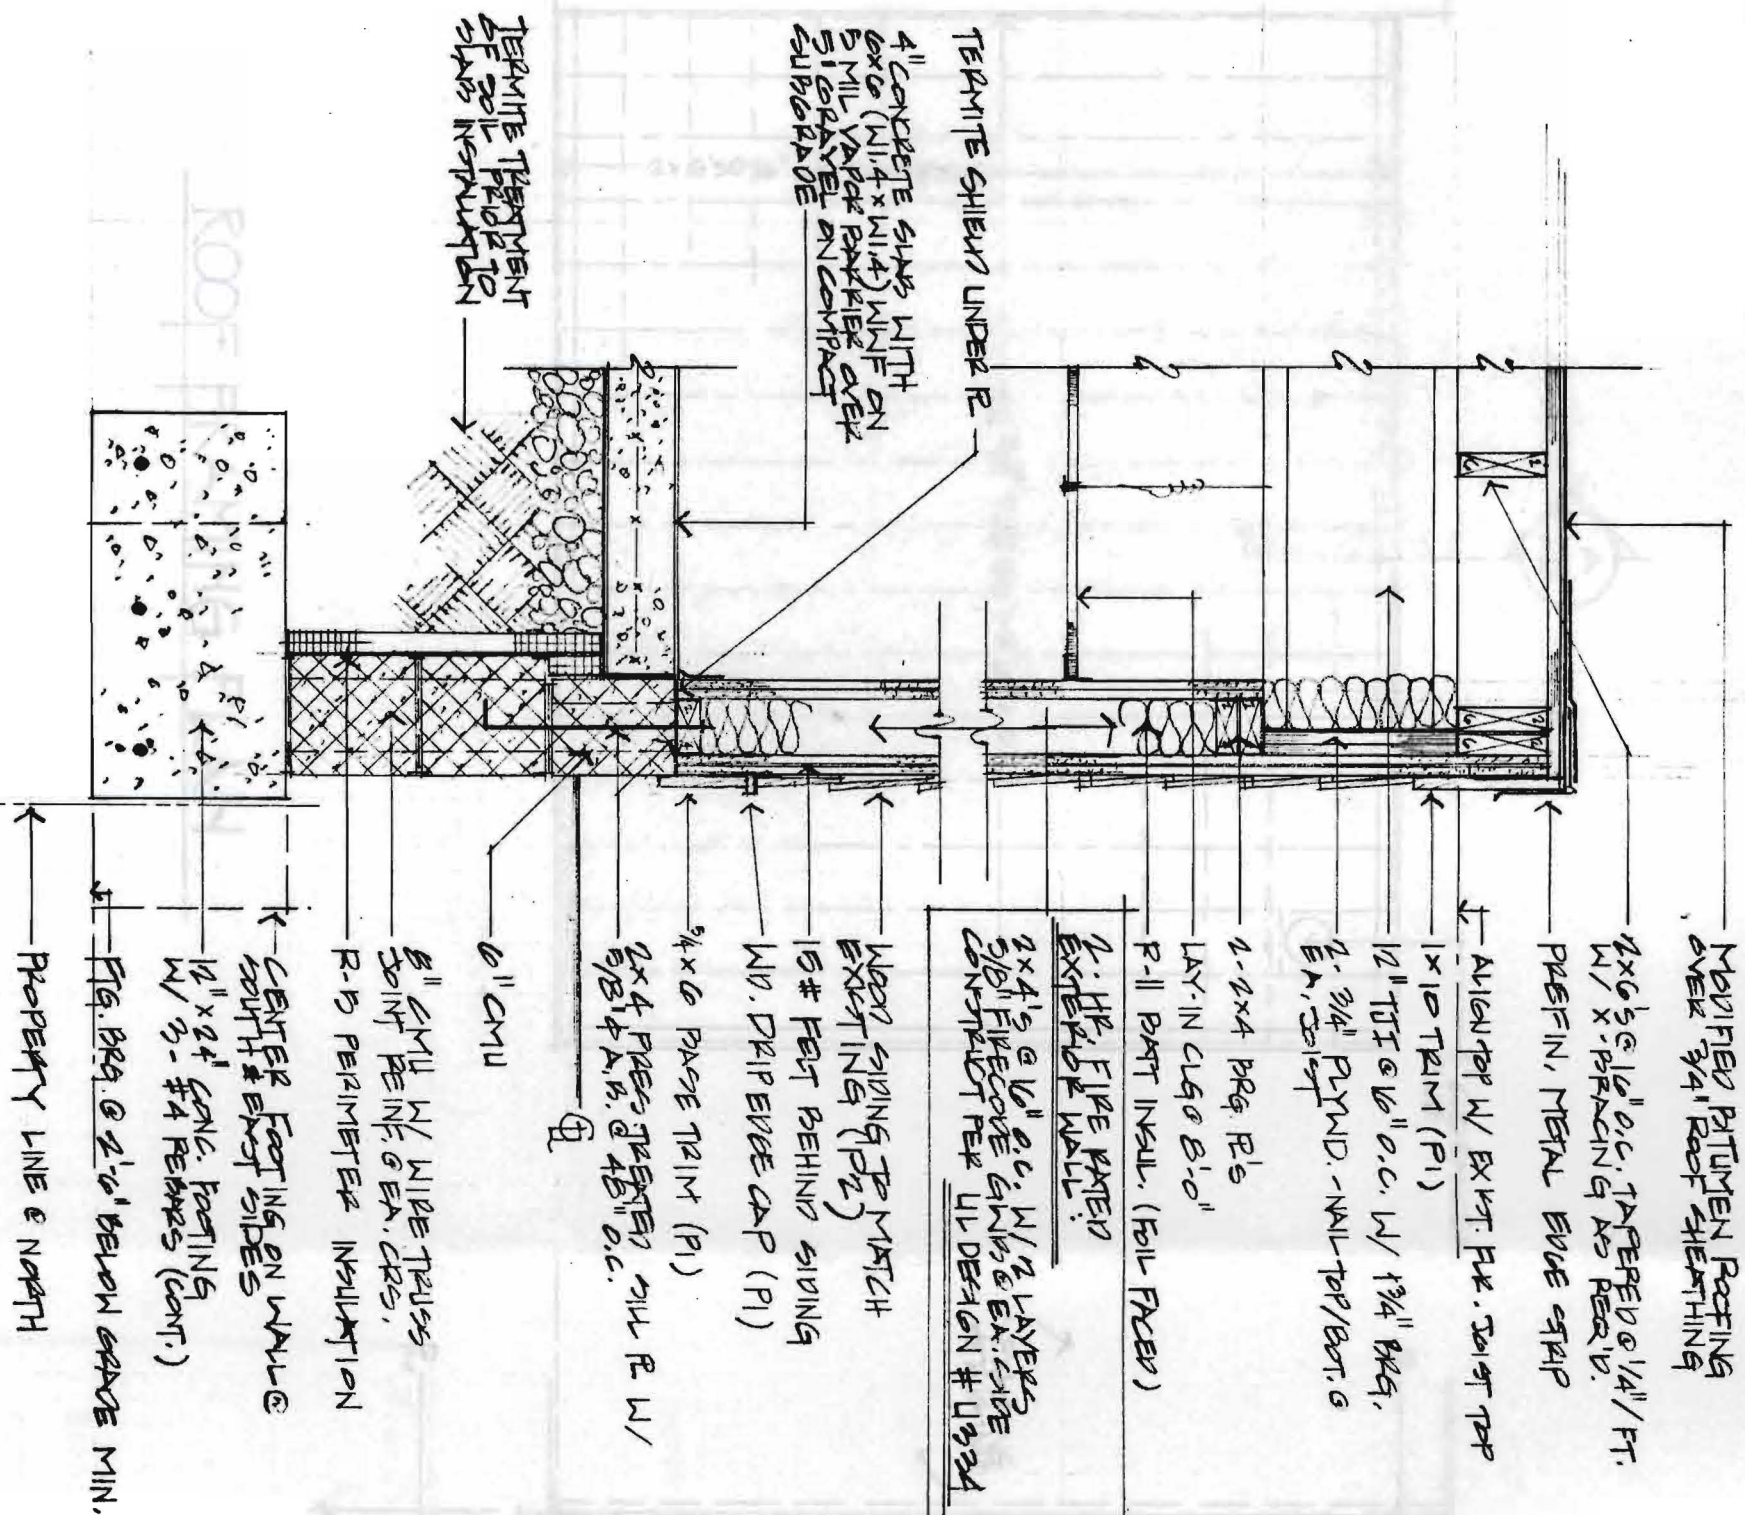 MODIFIED BITUMEN ROOFING
OVER 3/4" ROOF SHEATHING
2x6'S @ 16" O.C. TAPERED @ 1/4"/FT.
W/ X-BRACING AS REQ'D.
PREFIN. METAL EDGE STRIP
ALIGN TOP W/ EXIST. FLR. JOIST TOP
1x10 TRIM (P1)
12" TJI @ 16" O.C. W/ 1 3/4" BRG.
2-3/4" PLYWD. - NAIL TOP/BOT. @
EA. JOIST
2-2x4 BRG. PL'S
LAY-IN CLG @ 8'-0"
R-11 BATT INSUL. (FOIL FACED)
2 · HR. FIRE RATED
EXTERIOR WALL:
2x4'S @ 16" O.C. W/ 2 LAYERS
5/8" FIRECODE GWB @ EA. SIDE
CONSTRUCT PER UL DESIGN #
WOOD SIDING TO MATCH
EXISTING (P2)
15# FELT BEHIND SIDING
WD. DRIP EDGE CAP (P1)
5/4 x 6 BASE TRIM (P1)
2x4 PRES. TREATED SILL PL W/
5/8" ϕ A.B. @ 48" O.C.
6" CMU
8" CMU W/ WIRE TRUSS
JOINT REINF. @ EA. CRS.
R-5 PERIMETER INSULATION
CENTER FOOTING ON WALL @
SOUTH & EAST SIDES
12" x 24" CONC. FOOTING
W/ 3-#4 REBARS (CONT.)
FTG. BRG. @ 2'-6" BELOW GRADE MIN.
PROPERTY LINE @ NORTH
TERMITE SHIELD UNDER PL
4" CONCRETE SLAB WITH
6x6 (W1.4 x W1.4) WWF ON
5 MIL VAPOR BARRIER OVER
5" GRAVEL ON COMPACT
SUBGRADE
TERMITE TREATMENT
OF SOIL PRIOR TO
SLAB INSTALLATION
ROOF FRAMING PLAN